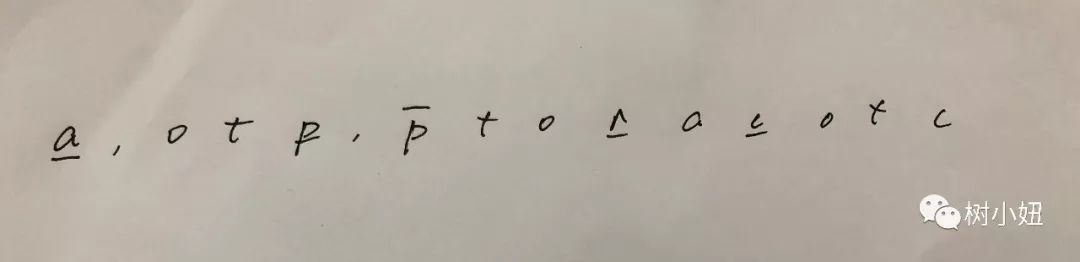 a̲, o t p, p̅ t o r̲ a c̲ o t c
树小妞